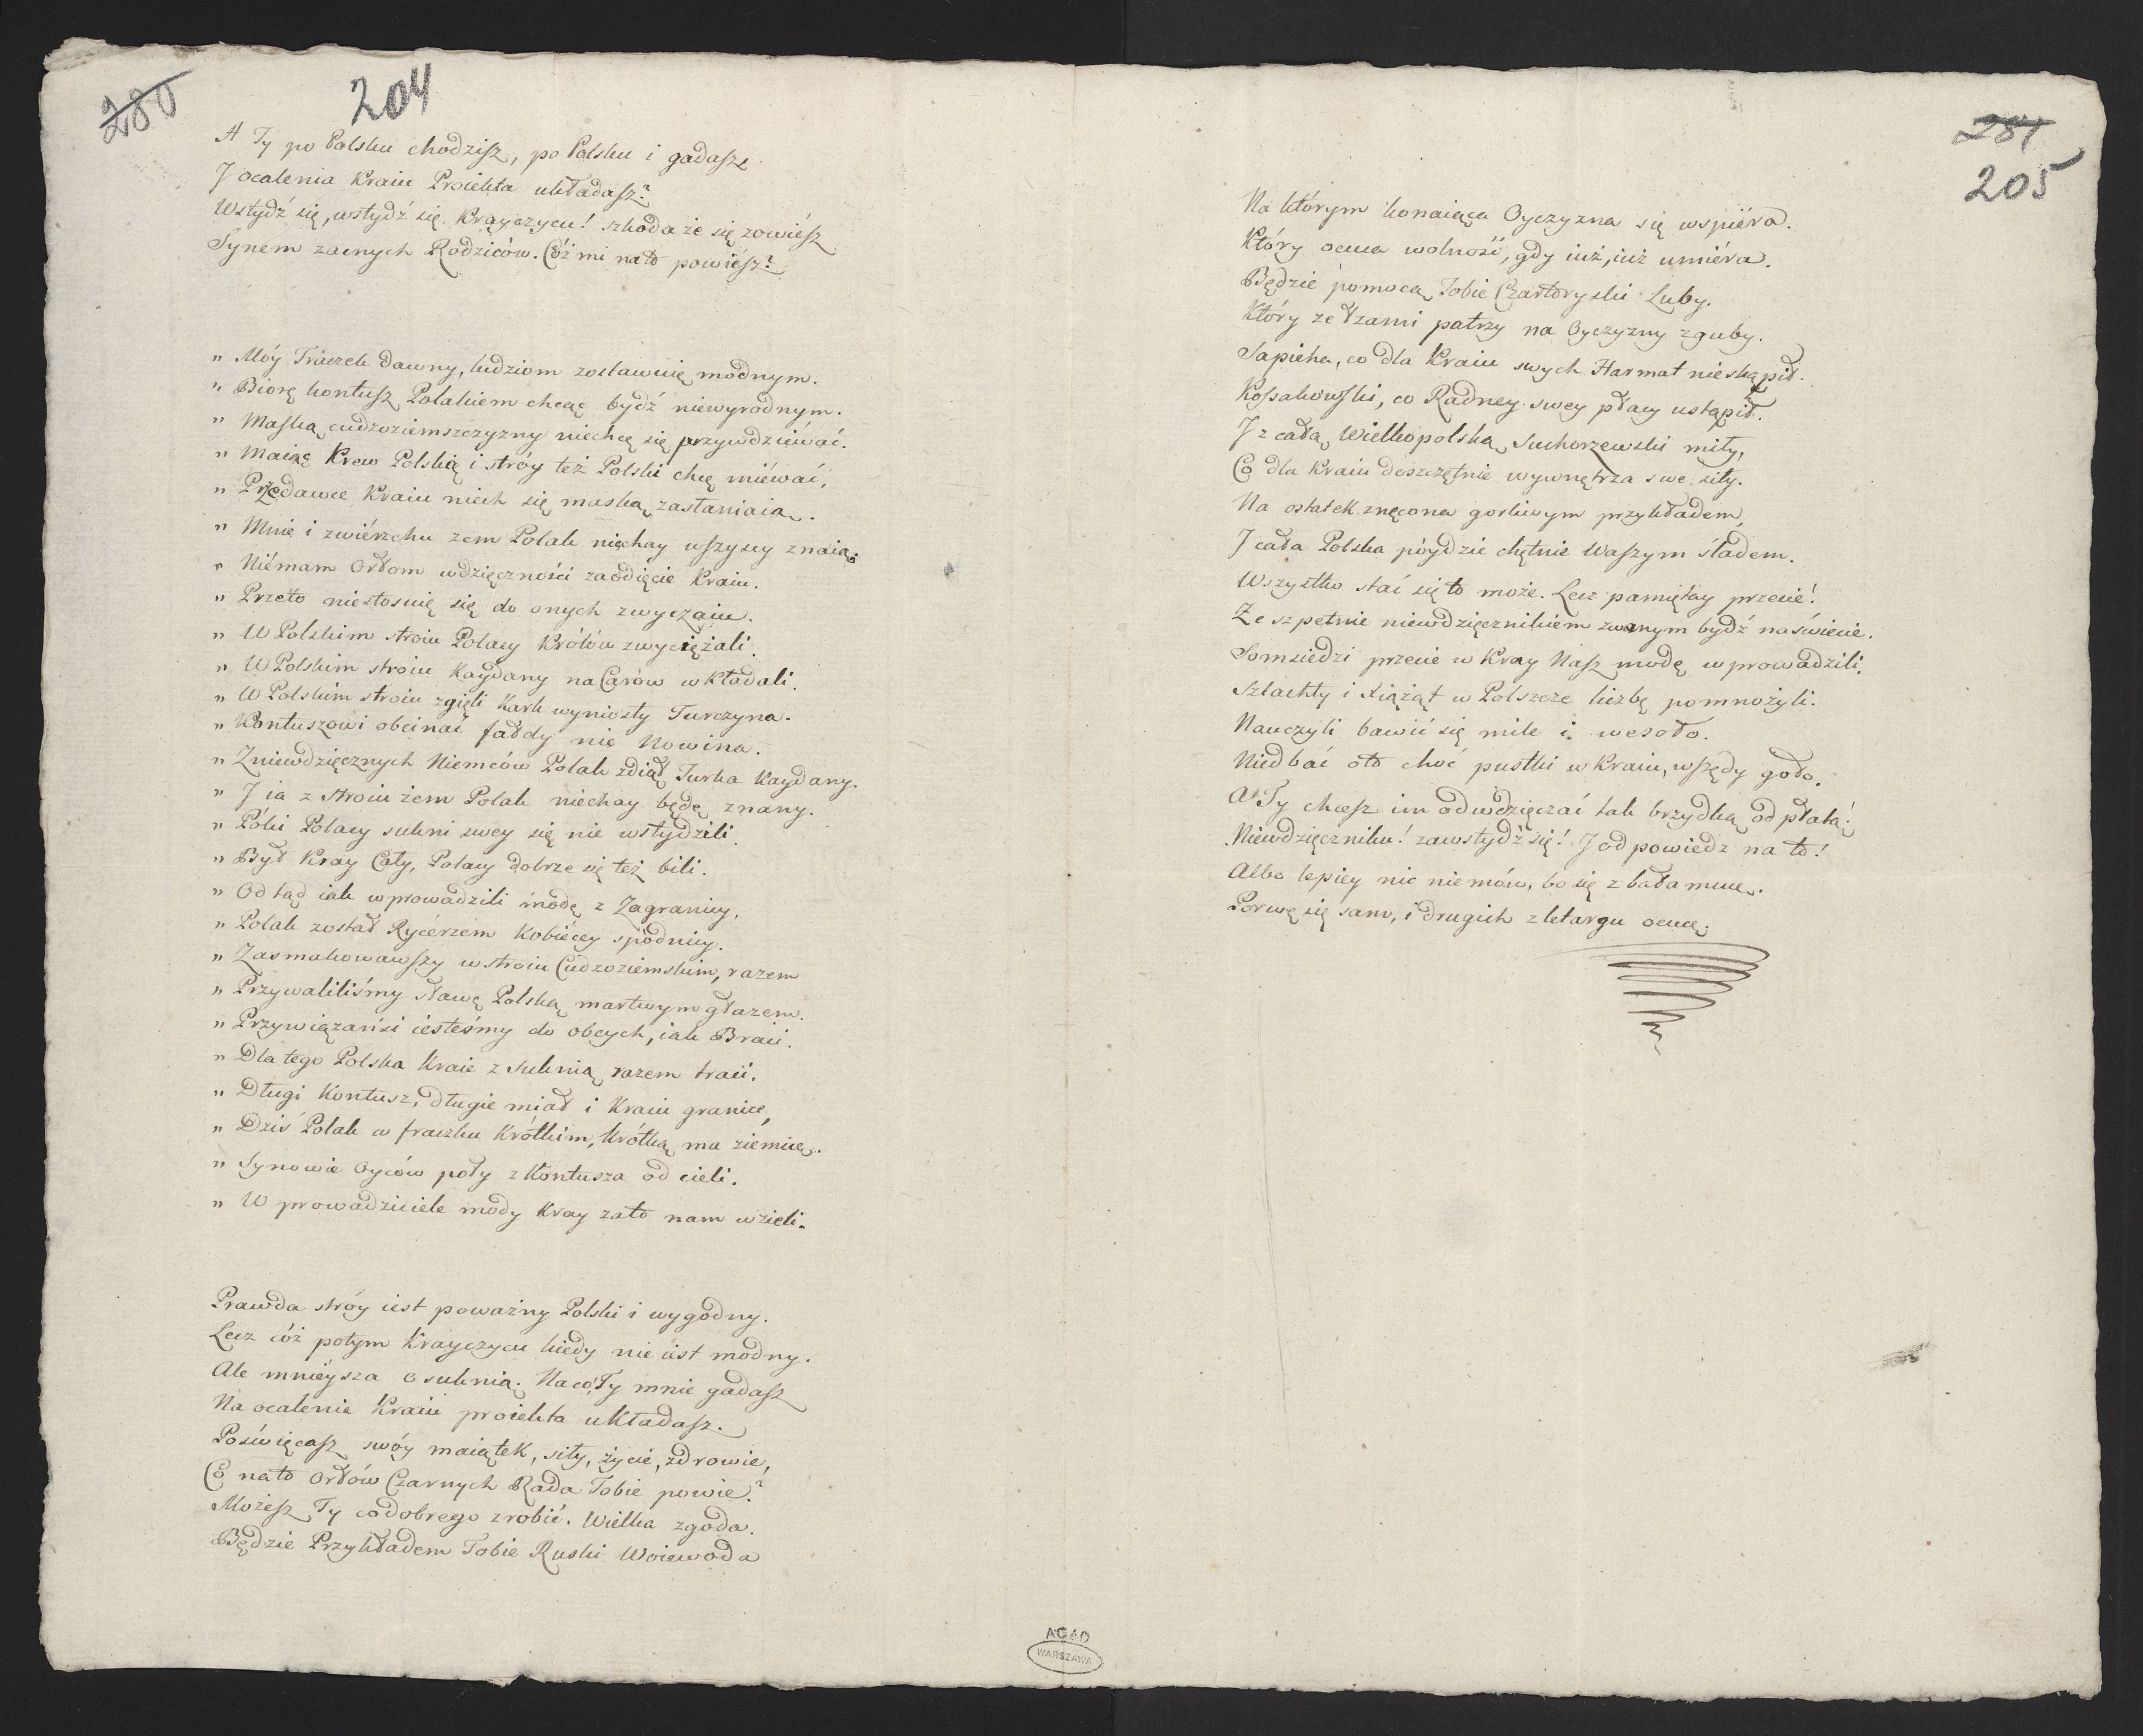 280
204
A Ty po Polsku chodzisz, po Polsku i gadasz,
J ocalenia Kraiu Proiekta układasz?
Wstydź się, wstydź się Krayczycu! szkoda że się zowiész
Synem zacnych Rodziców. Cóż mi na to powiész?
„ Móy Fraczek dawny, ludziom zostawuię modnym.
„ Biorę kontusz Polakiem chcąc bydź niewyrodnym.
„ Maską cudzoziemszczyzny niechcę się przywdziéwać.
„ Maiąc Krew Polską i stróy też Polski chcę miéwać,
„ Przedawce Kraiu niech się maską zasłaniaią.
„ Mnie i zwiérzchu żem Polak niechay wszyscy znaią.
„ Niémam Orłom wdzięczności za odięcie Kraiu.
„ Przeto niestosuię się do onych zwyczaiu.
„ W Polskim stroiu Polacy Królów zwyciężali.
„ W Polskim stroiu Kaydany na Carów wkładali.
„ W Polskim stroiu zgięli Kark wyniosły Turczyna.
„ Kontuszowi obcinać fałdy nie Nowina.
„ Zniewdzięcznych Niemców Polak zdiął Turka Kaydany.
„ J ia z stroiu żem Polak niechay będę znany.
„ Póki Polacy sukni swey się nie wstydzili.
„ Był Kray Cały, Polacy dobrze się też bili.
„ Od tąd iak wprowadzili modę z Zagranicy,
„ Polak został Rycérzem Kobiécey spódnicy.
„ Zasmakowawszy w stroiu Cudzoziemskim, razem
„ Przywaliliśmy sławę Polską martwym głazem.
„ Przywiązańsi iesteśmy do obcych, iak Braci.
„ Dla tego Polska Kraie z suknią razem traci.
„ Długi Kontusz, długie miał i Kraiu granice,
„ Dziś Polak w fraczku Krótkim, krótką ma ziemicę.
„ Synowie Oyców poły z Kontusza od cieli.
„ W prowadziciele mody Kray zato nam wzieli.
Prawda stróy iest poważny Polski i wygodny.
Lecz cóż potym Krayczycu kiedy nie iest modny.
Ale mnieysza o suknią. Na co Ty mnie gadasz
Na ocalenie Kraiu proiekta układasz.
Poświęcasz swóy maiątek, siły, życie, zdrowie,
Co na to Orłów Czarnych Rada Tobie powie?
Możesz Ty co dobrego zrobić. Wielka zgoda.
Będzie Przykładem Tobie Ruski Woiewoda
281
205
Na którym konaiąca Oyczyzna się wspiéra.
Który ocuca wolność, gdy iuż, iuż umiéra.
Będzie pomocą Tobie Czartoryski Luby.
Który ze łzami patrzy na Oyczyzny zguby.
Sapieha, co dla Kraiu swych Harmat nieskąpił.
Kossakowski, co Radney swey płacy ustąpił.
J z całą Wielkopolską Suchorzewski miły,
Co dla Kraiu doszczętnie wywnętrza swe siły.
Na ostatek znęcona gorliwym przykładem,
J cała Polska póydzie chętnie Waszym śladem.
Wszystko stać się to może. Lecz pamiętay przecie!
Że szpetnie niewdzięcznikiem zwanym bydź na świecie.
Somsiedzi przecie w Kray Nasz modę wprowadzili,
Szlachty i Xiążąt w Polszcze liczbę pomnożyli.
Nauczyli bawić się mile i wesoło.
Niedbać oto choć pustki w Kraiu, wszędy goło.
A Ty chcesz im odwdzięczać tak brzydką od płatą:
Niewdzięczniku! zawstydź się! J od powiedz na to!
Albo lepiey nic niemów, bo się z bałamucę.
Porwę się sam, i drugich z letargu ocucę.
AGAD
WARSZAWA